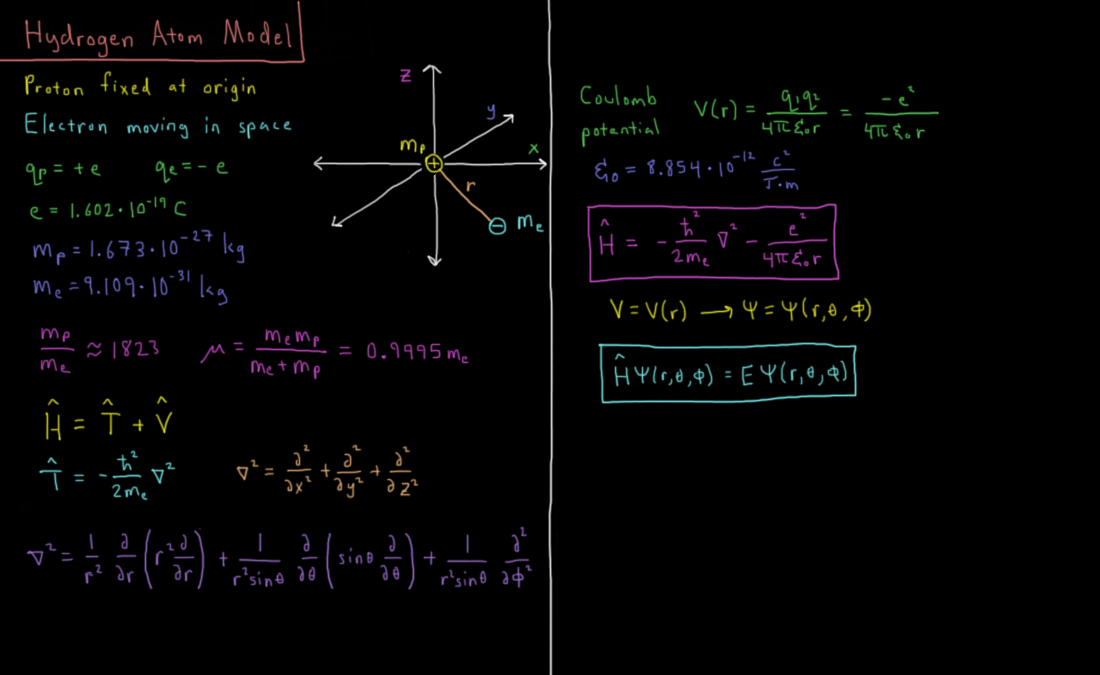 Hydrogen Atom Model
Proton fixed at origin
Electron moving in space
qp = +e qe = - e
e = 1.602·10^-19 C
mp = 1.673·10^-27 kg
me = 9.109·10^-31 kg
mp/me ≈ 1823 μ = me mp / (me + mp) = 0.9995 me
Ĥ = T̂ + V̂
T̂ = - ħ²/2me ∇² ∇² = ∂²/∂x² + ∂²/∂y² + ∂²/∂z²
∇² = 1/r² ∂/∂r (r² ∂/∂r) + 1/(r² sinθ) ∂/∂θ (sinθ ∂/∂θ) + 1/(r² sinθ) ∂²/∂ϕ²
z
y
mp
+
x
r
− me
Coulomb potential V(r) = q1q2 / 4πε₀r = -e² / 4πε₀r
ε₀ = 8.854·10^-12 C²/J·m
Ĥ = - ħ²/2me ∇² - e²/4πε₀r
V = V(r) → Ψ = Ψ(r,θ,ϕ)
ĤΨ(r,θ,ϕ) = EΨ(r,θ,ϕ)